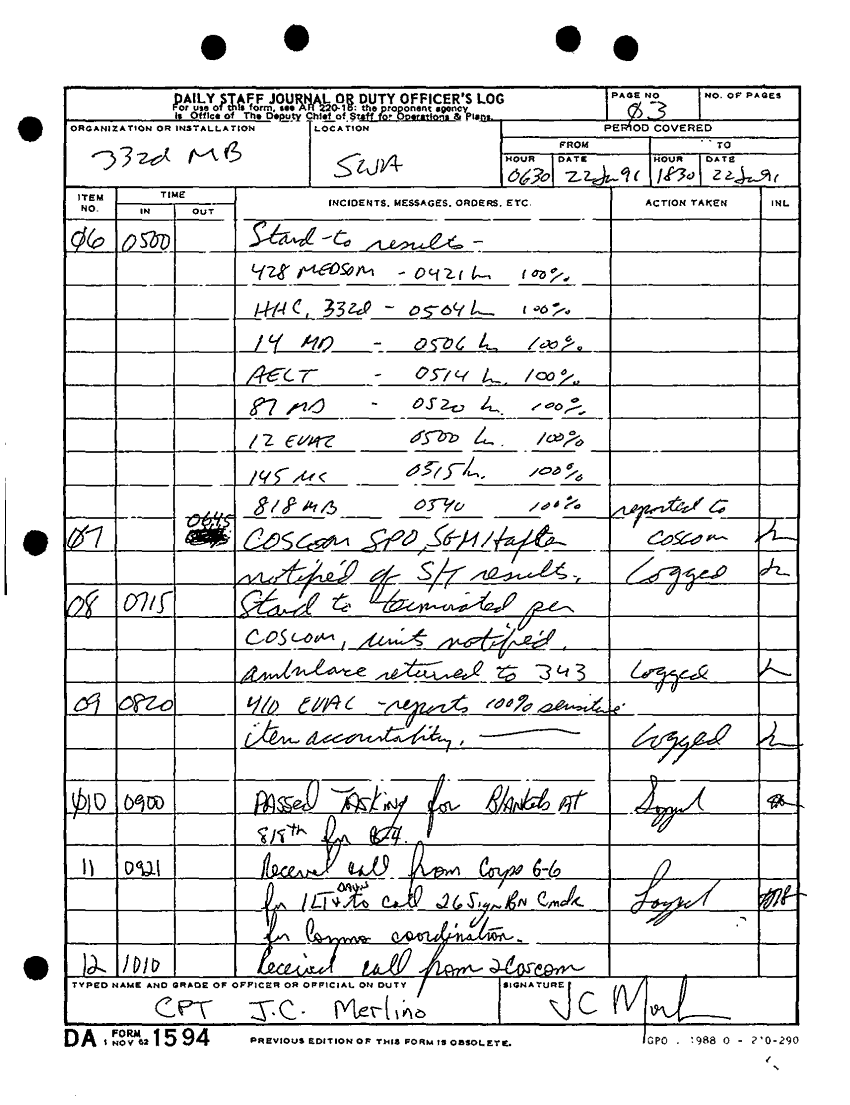 DAILY STAFF JOURNAL OR DUTY OFFICER'S LOG
For use of this form, see AR 220-15: the proponent agency
is Office of The Deputy Chief of Staff for Operations & Plans.
PAGE NO
03
NO. OF PAGES
ORGANIZATION OR INSTALLATION
332d MB
LOCATION
SWA
PERIOD COVERED
FROM TO
HOUR DATE HOUR DATE
0630 22 Jan 91 1830 22 Jan 91
ITEM NO. TIME IN OUT INCIDENTS, MESSAGES, ORDERS, ETC. ACTION TAKEN INL
06 0500 Stand-to results -
428 MEDSOM - 0421 h 100%
HHC, 332d - 0504 h 100%
14 MD - 0506 h 100%
AELT - 0514 h. 100%
87 MD - 0520 h. 100%
12 EVAC 0500 h. 100%
145 MC 0515 h. 100%
818 MB 0540 100% reported to
07 0645 COSCOM SPO, SGM Hafter COSCOM
notified of S/T results. Logged
08 0715 Stand to terminated per
COSCOM, units notified,
ambulance returned to 343 Logged
09 0820 410 EVAC - reports 100% sensitive
item accountability. Logged
010 0900 PASSED TASKING for Blankets AT
818th for
11 0921 Received call from Corps G-6
for 1LT to call 26 Sign BN Cmdr
for Commo coordination.
12 1010 Received call from 2 Coscom
TYPED NAME AND GRADE OF OFFICER OR OFFICIAL ON DUTY
CPT J.C. Merlino
SIGNATURE
DA FORM 1 NOV 62 1594
PREVIOUS EDITION OF THIS FORM IS OBSOLETE.
GPO : 1988 O - 210-290